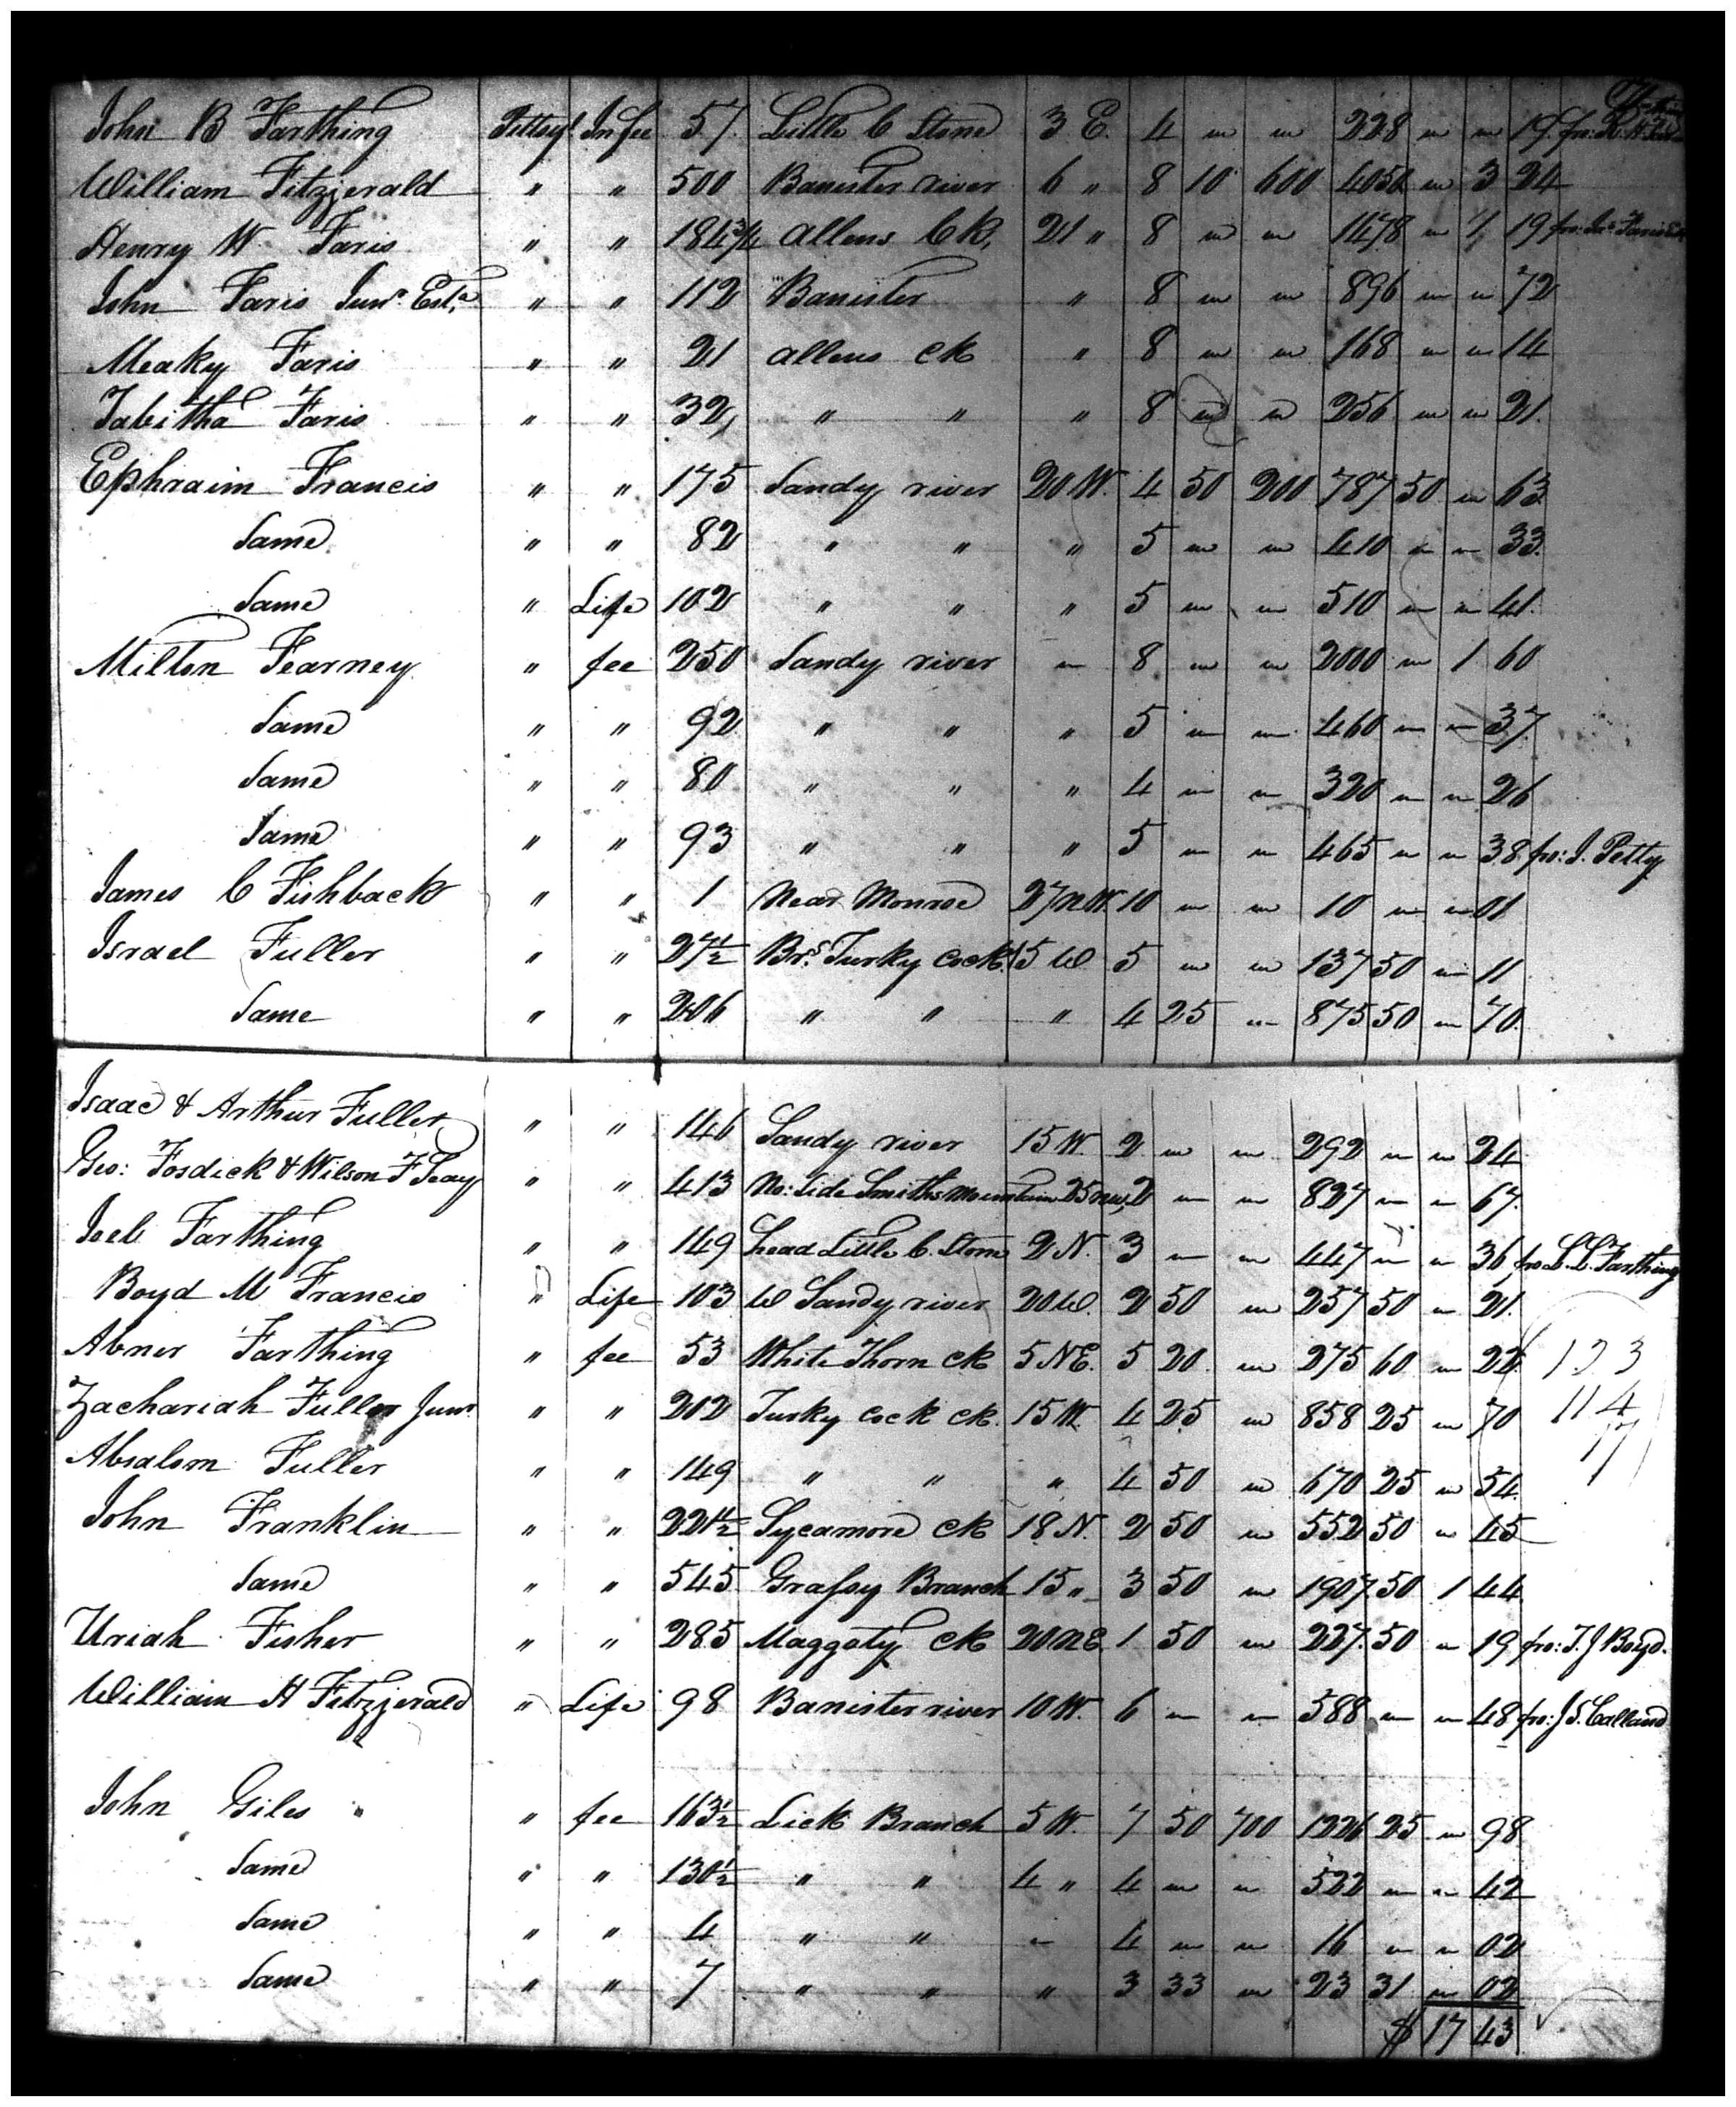 John B Farthing Pittsy! In fee 57 Little C Stone 3 E. 4 " " 228 " " 19 fro: R. H.
William Fitzgerald " " 500 Banister river 6 " 8 10 600 4050 " 3 24
Henry W. Faris " " 184 3/4 Allens Ck, 21 " 8 " " 1478 " 1 19 fro: Jno Faris Est
John Faris Junr. Esta. " " 112 Banister " 8 " " 896 " " 72
Meaky Faris " " 21 allens ck " 8 " " 168 " " 14
Tabitha Faris " " 32, " " " 8 " " 256 " " 21.
Ephraim Francis " " 175 Sandy river 20 W. 4 50 200 787 50 " 63
Same " " 82 " " " 5 " " 410 " " 33.
Same " Life 102 " " " 5 " " 510 " " 41.
Milton Fearney " fee 250 Sandy river " 8 " " 2000 " 1 60
Same " " 92 " " " 5 " " 460 " " 37.
Same " " 80 " " " 4 " " 320 " " 26
Same " " 93 " " " 5 " " 465 " " 38 fro: J. Petty
James C Fishback " " 1 Near Monroe 27 NW. 10 " " 10 " " 01
Israel Fuller " " 27 1/2 Brs. Turky cock 15 W 5 " " 137 50 " 11
Same " " 206 " " " 4 25 " 875 50 " 70.
Isaac & Arthur Fuller " " 146 Sandy river 15 W. 2 " " 292 " " 24
Geo: Fosdick & Wilson F Seay " " 413 No: side Smiths Mountain 25 nw, 2 " " 827 " " 67.
Joel Farthing " " 149 head Little C. Stone 2 N. 3 " " 447 " " 36 fro L. L. Farthing
Boyd M Francis " Life 103 W Sandy river 20 W. 2 50 " 257 50 " 21.
Abner Farthing " fee 53 White Thorn ck 5 NE. 5 20 " 275 60 " 22. 123
Zachariah Fuller Junr. " " 202 Turky cock ck. 15 W. 4 25 " 858 25 " 70 114
Absalom Fuller " " 149 " " " 4 50 " 670 25 " 54.
John Franklin " " 221 1/2 Sycamore ck 18 N. 2 50 " 552 50 " 45
Same " " 545 Grassy Branch 15 " 3 50 " 1907.50 1 44
Uriah Fisher " " 285 Maggoty ck 20 NE. 1 50 " 227.50 " 19 fro: T. J Boyd.
William H Fitzgerald " Life 98 Banister river 10 W. 6 " " 588 " " 48 fro: J S. Calland
John Giles " " fee 163 1/2 Lick Branch 5 W. 7 50 700 1226 25 " 98
Same " " 130 1/2 " " 4 " 4 " " 522 " " 42
Same " " 4 " " " 4 " " 16 " " 02
Same " " 7 " " " 3 33 " 23 31 " 02
$ 17 43